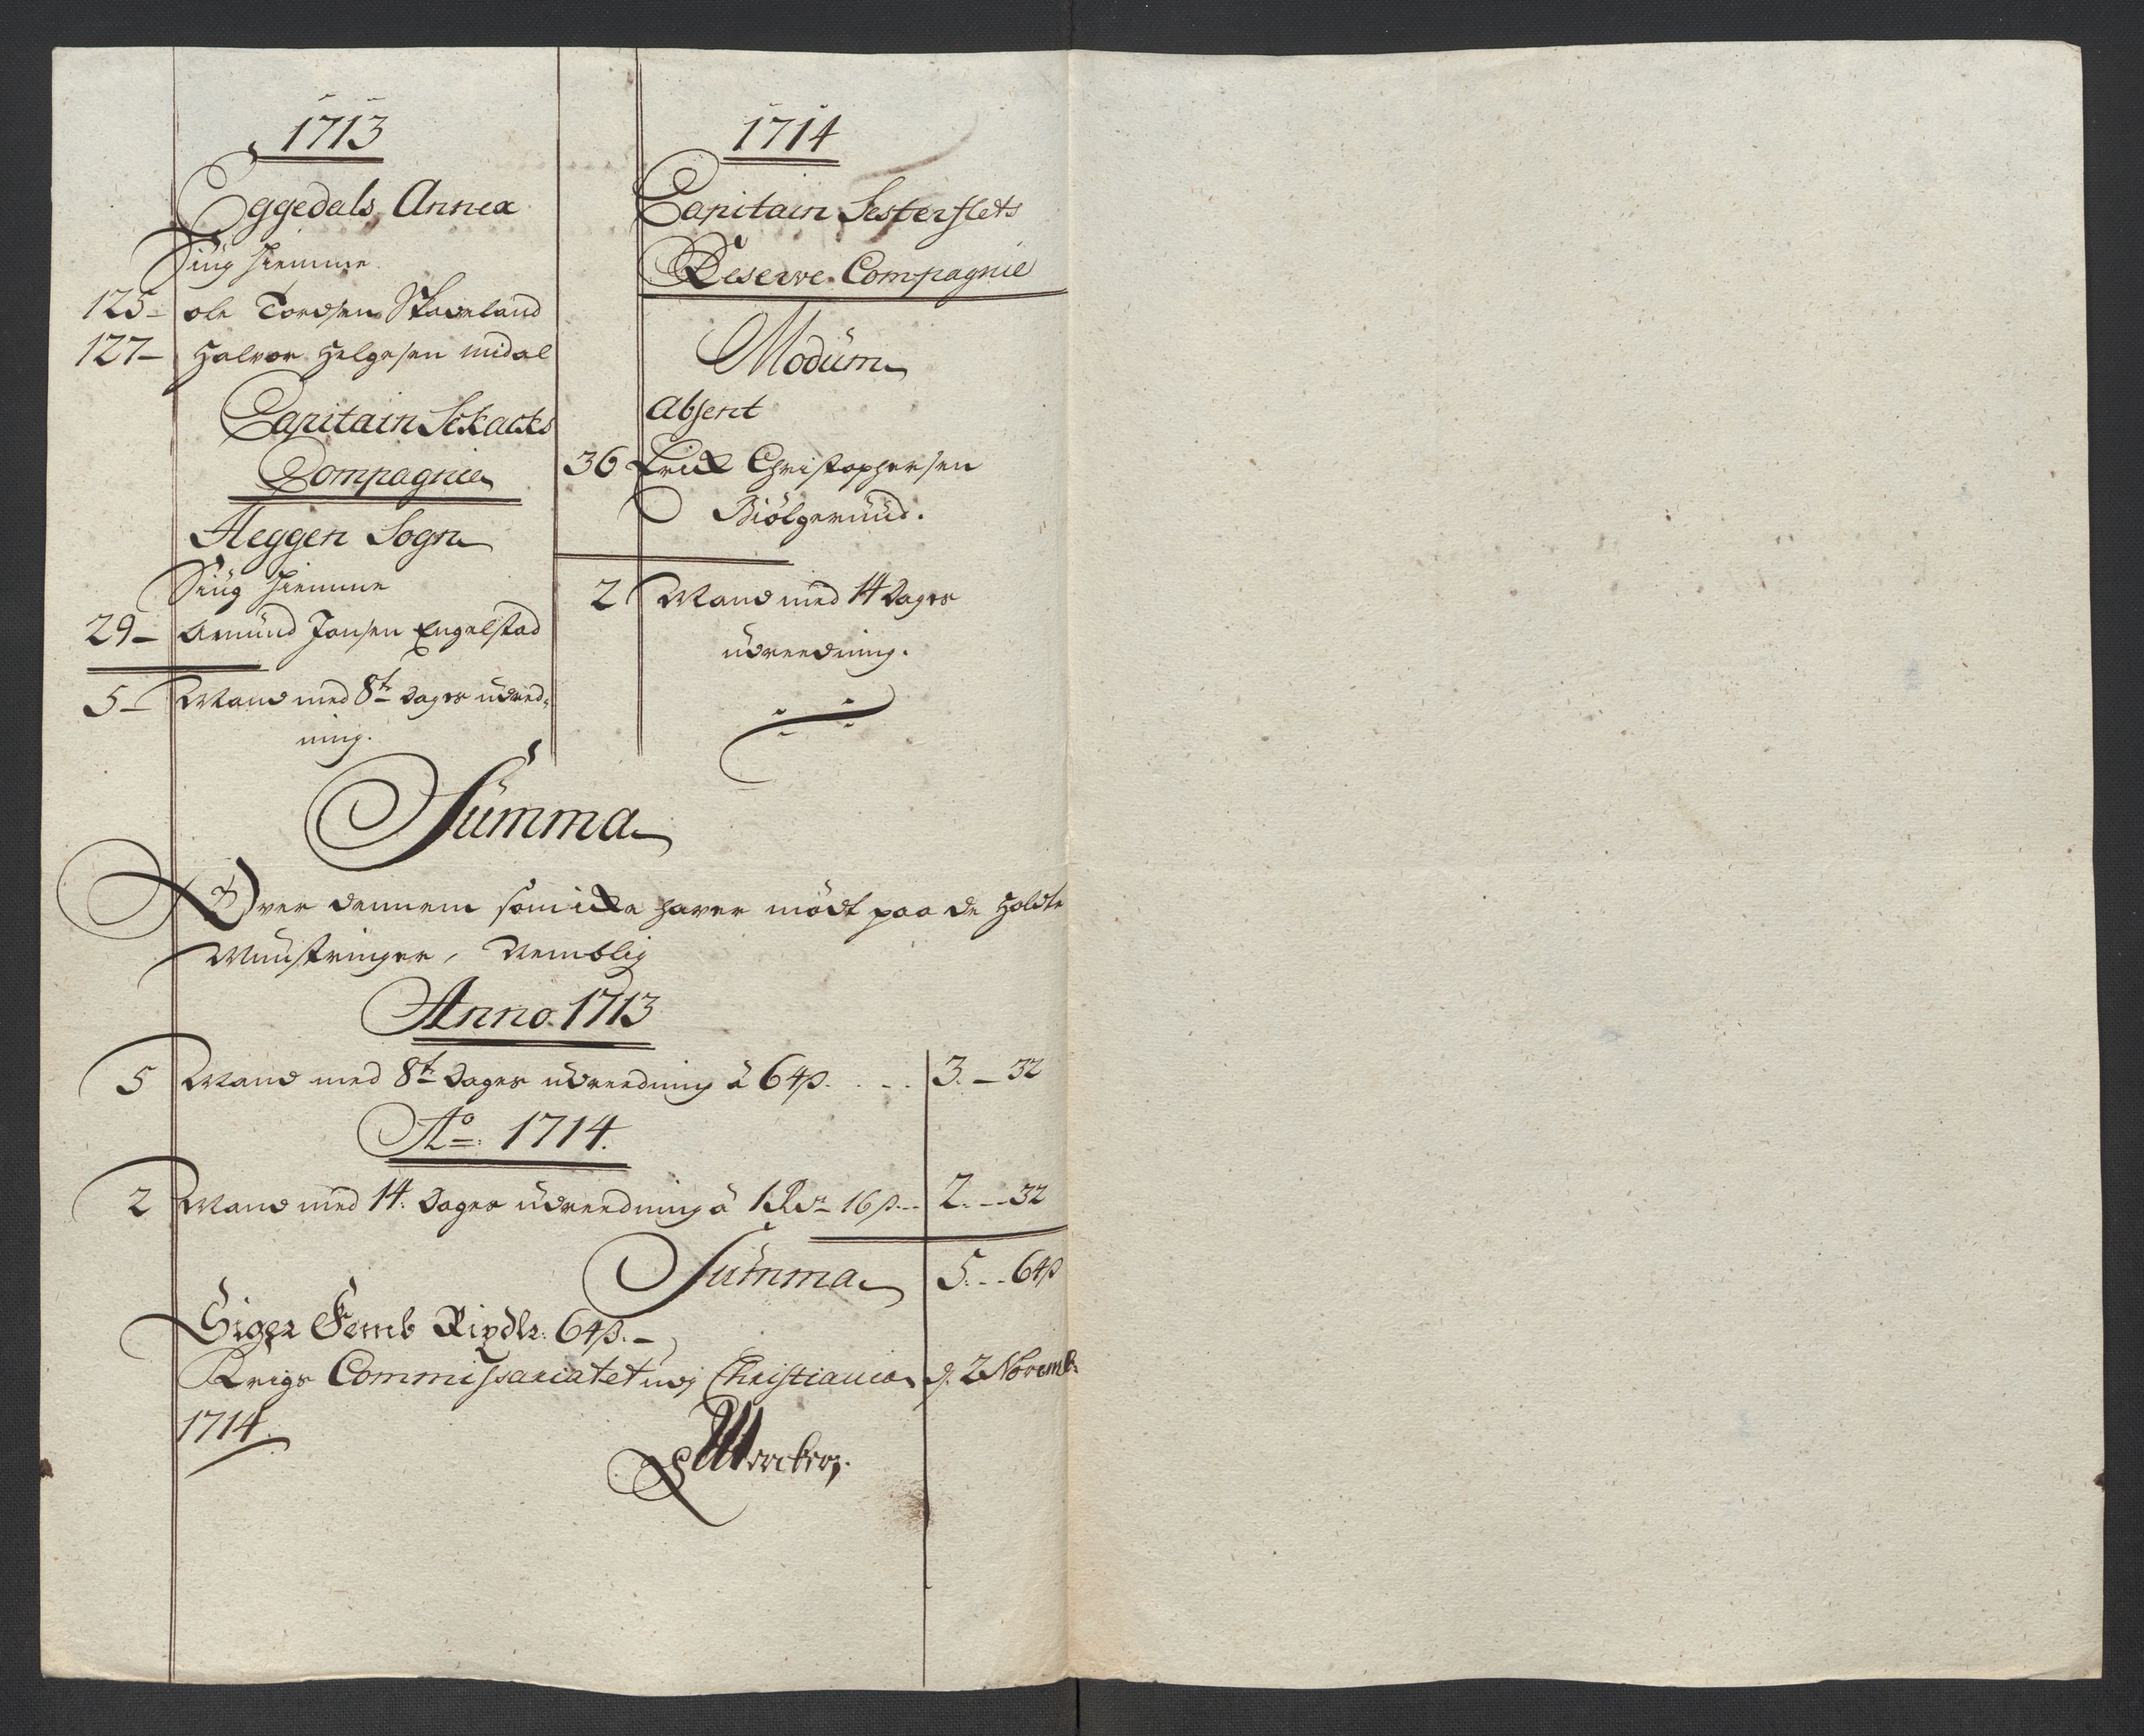 1713
Eggedals Annex
Siug hiemme
125 – ole Tordsen Skadeland
127 – Halvor Helgesen midal
Capitain Sckacks
Compagnie
Heggen Sogn
Siug hiemme
29 – Amund Jonsen Engelstad
5 – Mand med 8te dages udred-
ning.
1714
Capitain Sesterflets
Reserve Compagnie
Modum
Absent
36 Erick Christophersen
Biølgeruud.
2 Mand med 14 dages
udreedning.
Summa
Over dennem som icke haver mødt paa de Holdte
Munstringer, Nemblig
Anno 1713
5 Mand med 8te Dages udreedning à 64 ß. . . . 3. – 32
Ao: 1714.
2 Mand med 14. Dages udreedning à 1 Rdr 16 ß. – – 2. – – 32
Summa 5. – – 64 ß
Siger Femb Rixdlr: 64 ß. –
Krigs Commissariatet udj Christiania d. 2 Novemb:
1714.